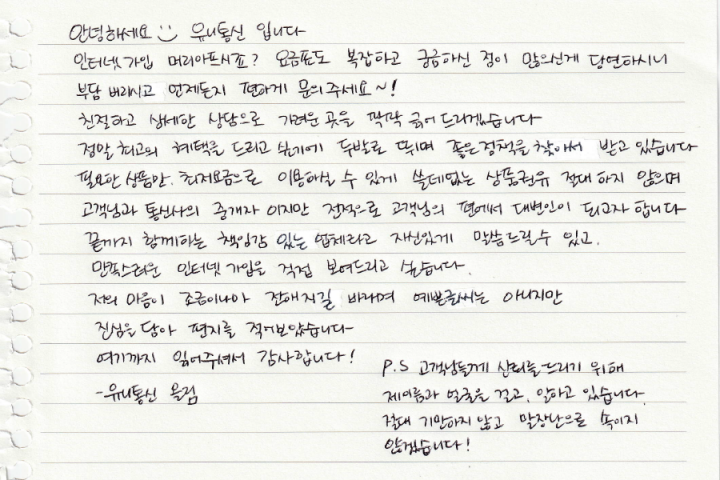 안녕하세요 유니통신 입니다
인터넷가입 머리아프시죠? 요금표도 복잡하고 궁금하신 점이 많으신게 당연하시니
부담 버리시고 언제든지 편하게 문의주세요~!
친절하고 상세한 상담으로 가려운 곳을 팍팍 긁어드리겠습니다
정말 최고의 혜택을 드리고 싶기에 두발로 뛰며 좋은정책을 찾아서 받고 있습니다
필요한 상품만. 최저요금으로 이용하실 수 있게 쓸데없는 상품권유 절대 하지 않으며
고객님과 통신사의 중개자 이지만 전적으로 고객님의 편에서 대변인이 되고자 합니다
끝까지 함께하는 책임감 있는 업체라고 자신있게 말씀드릴수 있고.
만족스러운 인터넷가입을 직접 보여드리고 싶습니다.
저의 마음이 조금이나마 전해지길 바라며 예쁜글씨는 아니지만
진심을 담아 편지를 적어보았습니다
여기까지 읽어주셔서 감사합니다!
-유니통신 올림
P.S 고객님들께 신뢰를드리기 위해
제이름과 얼굴을 걸고. 일하고 있습니다.
절대 기만하지않고 말장난으로 속이지
않겠습니다!